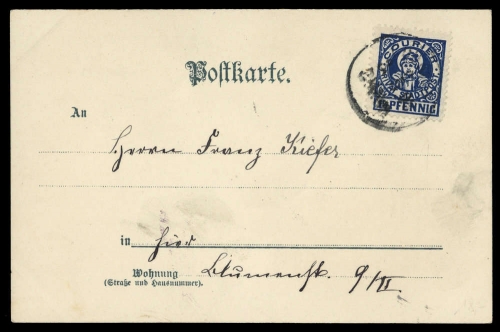 Postkarte.
COURIER
PRIVAT STADTPOST
PFENNIG
An
Herrn Franz Kiefer
in hier
Wohnung
(Straße und Hausnummer).
Blumenst. 9/II